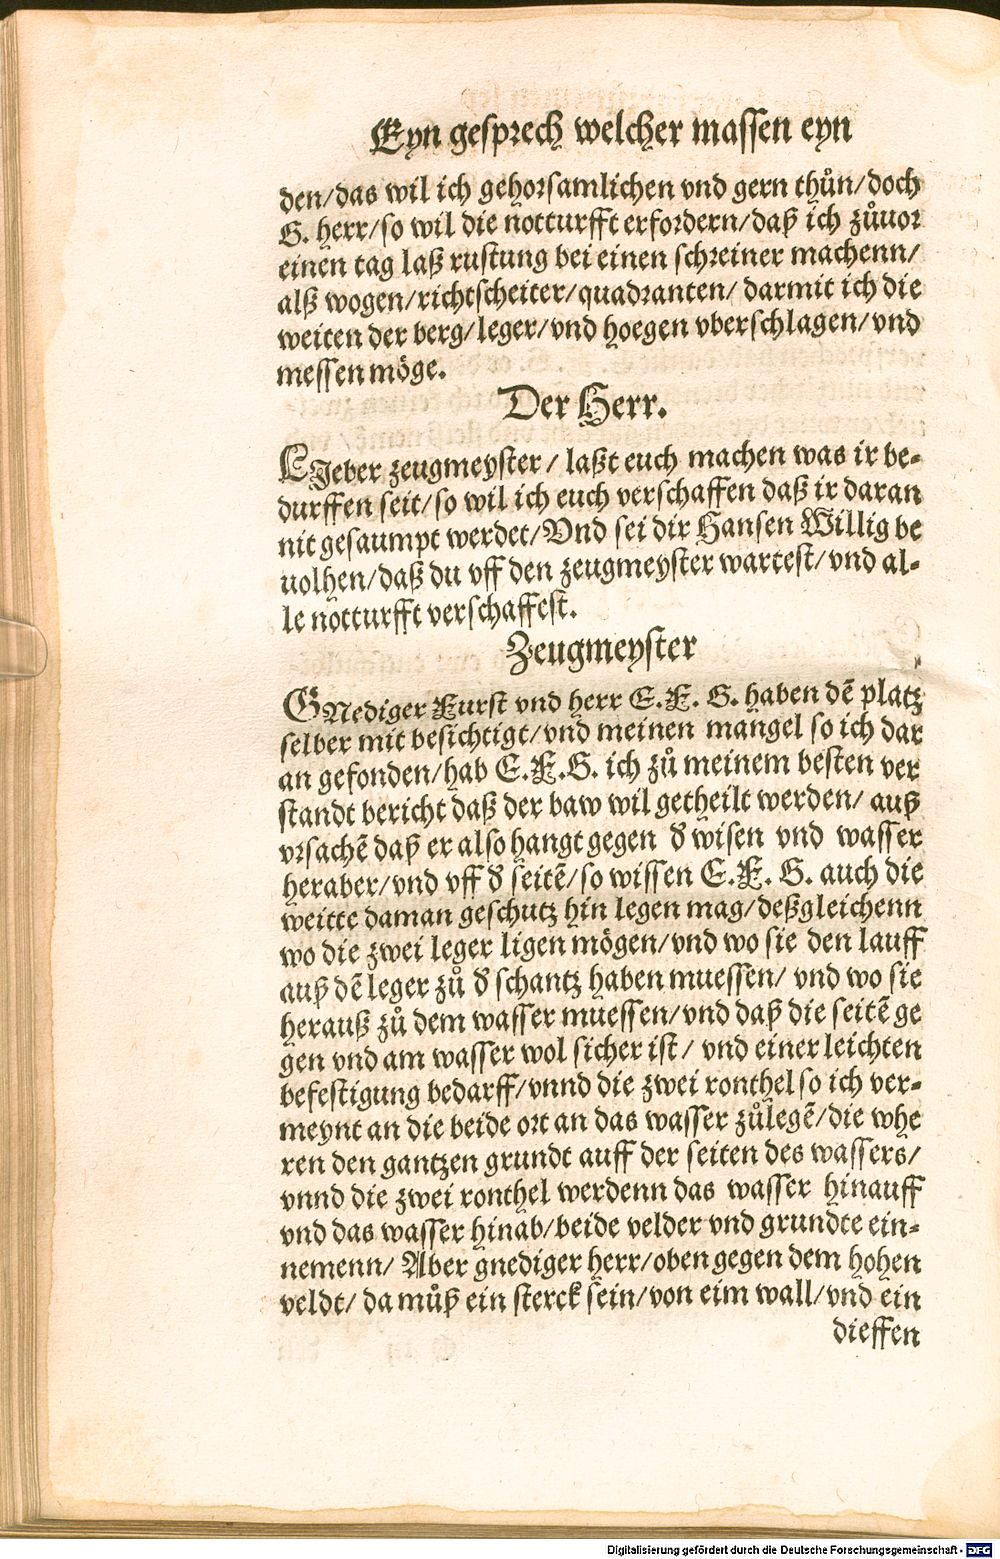 Eyn gesprech welcher massen eyn
den/das wil ich gehorsamlichen vnd gern thůn/doch
G. herr/so wil die notturfft erfordern/daß ich zůuor
einen tag laß rustung bei einen schreiner machenn/
alß wogen/richtscheiter/quadranten/ darmit ich die
weiten der berg/leger/vnd hoegen vberschlagen/vnd
messen möge.
Der Herr.
LJeber zeugmeyster/ laßt euch machen was ir be-
durffen seit/so wil ich euch verschaffen daß ir daran
nit gesaumpt werdet/Vnd sei dir Hansen Willig be
uolhen/daß du vff den zeugmeyster wartest/vnd al-
le notturfft verschaffest.
Zeugmeyster
GNediger Furst vnd herr E. F. G. haben dē platz
selber mit besichtigt/vnd meinen mangel so ich dar
an gefonden/hab E.F.G. ich zů meinem besten ver
standt bericht daß der baw wil getheilt werden/ auß
vrsachē daß er also hangt gegen đ wisen vnd wasser
heraber/vnd vff đ seitē/so wissen E.F. G. auch die
weitte daman geschutz hin legen mag/deßgleichenn
wo die zwei leger ligen mögen/vnd wo sie den lauff
auß dē leger zů đ schantz haben muessen/ vnd wo sie
herauß zů dem wasser muessen/vnd daß die seitē ge
gen vnd am wasser wol sicher ist/ vnd einer leichten
befestigung bedarff/vnnd die zwei ronthel so ich ver-
meynt an die beide ort an das wasser zůlegē/die whe
ren den gantzen grundt auff der seiten des wassers/
vnnd die zwei ronthel werdenn das wasser hinauff
vnd das wasser hinab/beide velder vnd grundte ein-
nemenn/ Aber gnediger herr/oben gegen dem hohen
veldt/ da můß ein sterck sein/von eim wall/vnd ein
dieffen
Digitalisierung gefördert durch die Deutsche Forschungsgemeinschaft - DFG